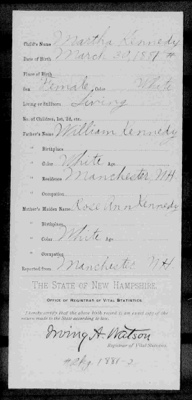 Child's Name Martha Kennedy
Date of Birth March 30, 1881
Place of Birth
Sex Female Color White
Living or Stillborn Living
No. of Children, 1st, 2d, etc.
Father's Name William Kennedy
" Birthplace
" Color White Age
" Residence Manchester NH
" Occupation
Mother's Maiden Name Rose Ann Kennedy
" Birthplace
" Color White Age
" Occupation
Reported from Manchester NH
THE STATE OF NEW HAMPSHIRE.
OFFICE OF REGISTRAR OF VITAL STATISTICS.
I hereby certify that the above birth record is an exact copy of the
return made to the State according to law.
Irving A. Watson
Registrar of Vital Statistics.
1881-2